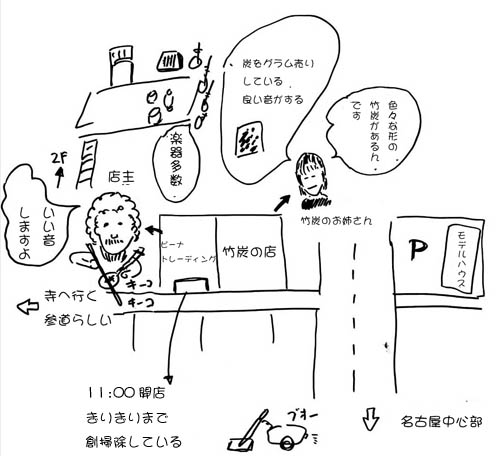 炭をグラム売り
している
良い音がする
色々な形の
竹炭があるん
です
楽器多数
2F
店主
いい音
しますよ
竹炭のお姉さん
ビーナ
トレーディング
竹炭の店
P
モデルハウス
キーコ
キーコ
寺へ行く
参道らしい
11:00開店
きりきりまで
創掃除している
ブオー
名古屋中心部